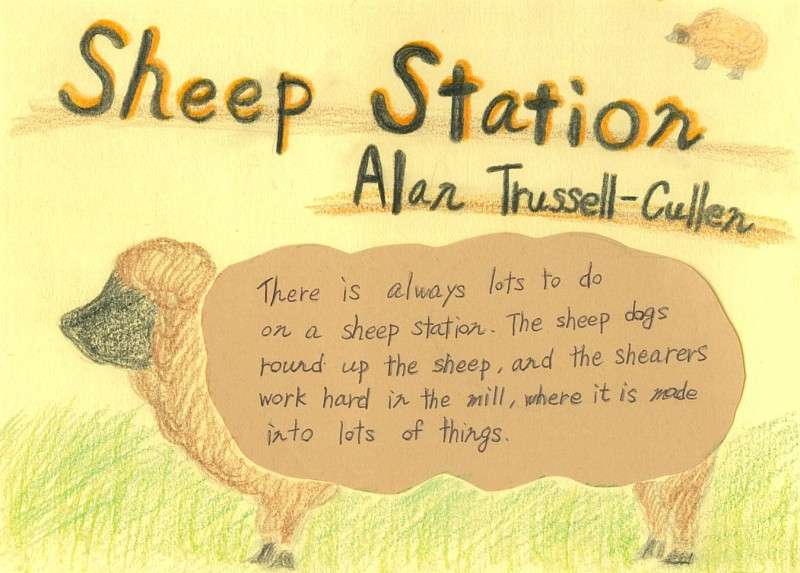 Sheep Station
Alan Trussell-Cullen
There is always lots to do
on a sheep station. The sheep dogs
round up the sheep, and the shearers
work hard in the mill, where it is made
into lots of things.